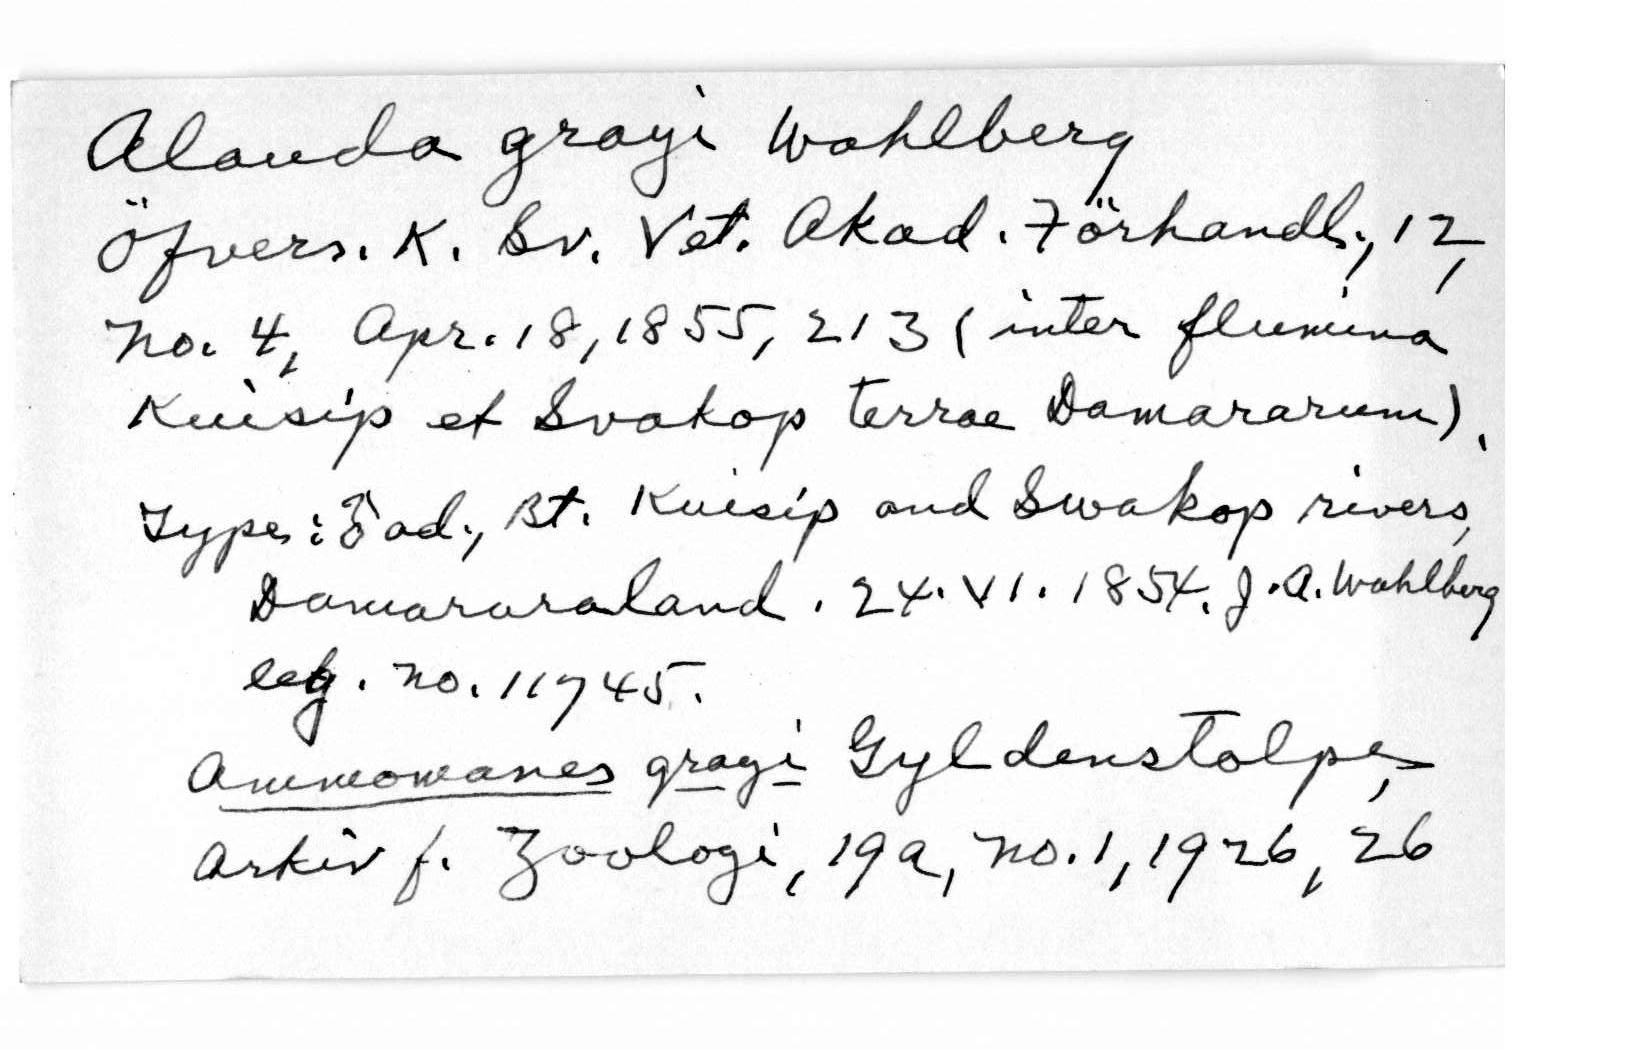 Alauda grayi Wahlberg
Öfvers. K. Sv. Vet. Akad. Förhandl., 12,
no. 4, Apr. 18, 1855, 213 (inter flumina
Kuisip et Svakop terrae Damararum).
Type: ♂ ad., Bt. Kuisip and Swakop rivers,
Damararaland. 24. VI. 1854. J. A. Wahlberg
leg. no. 11745.
Ammomanes grayi Gyldenstolpe,
Arkiv f. Zoologi, 19a, no. 1, 1926, 26